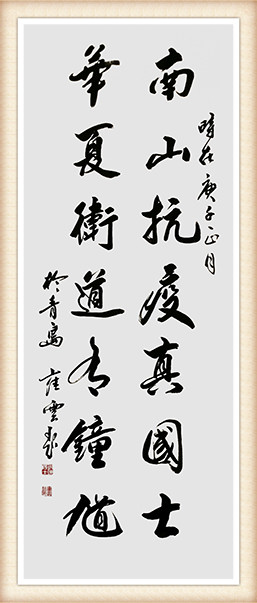 時在庚子正月
南山抗疫真國士
華夏衛道有鐘馗
於青島 崔雲